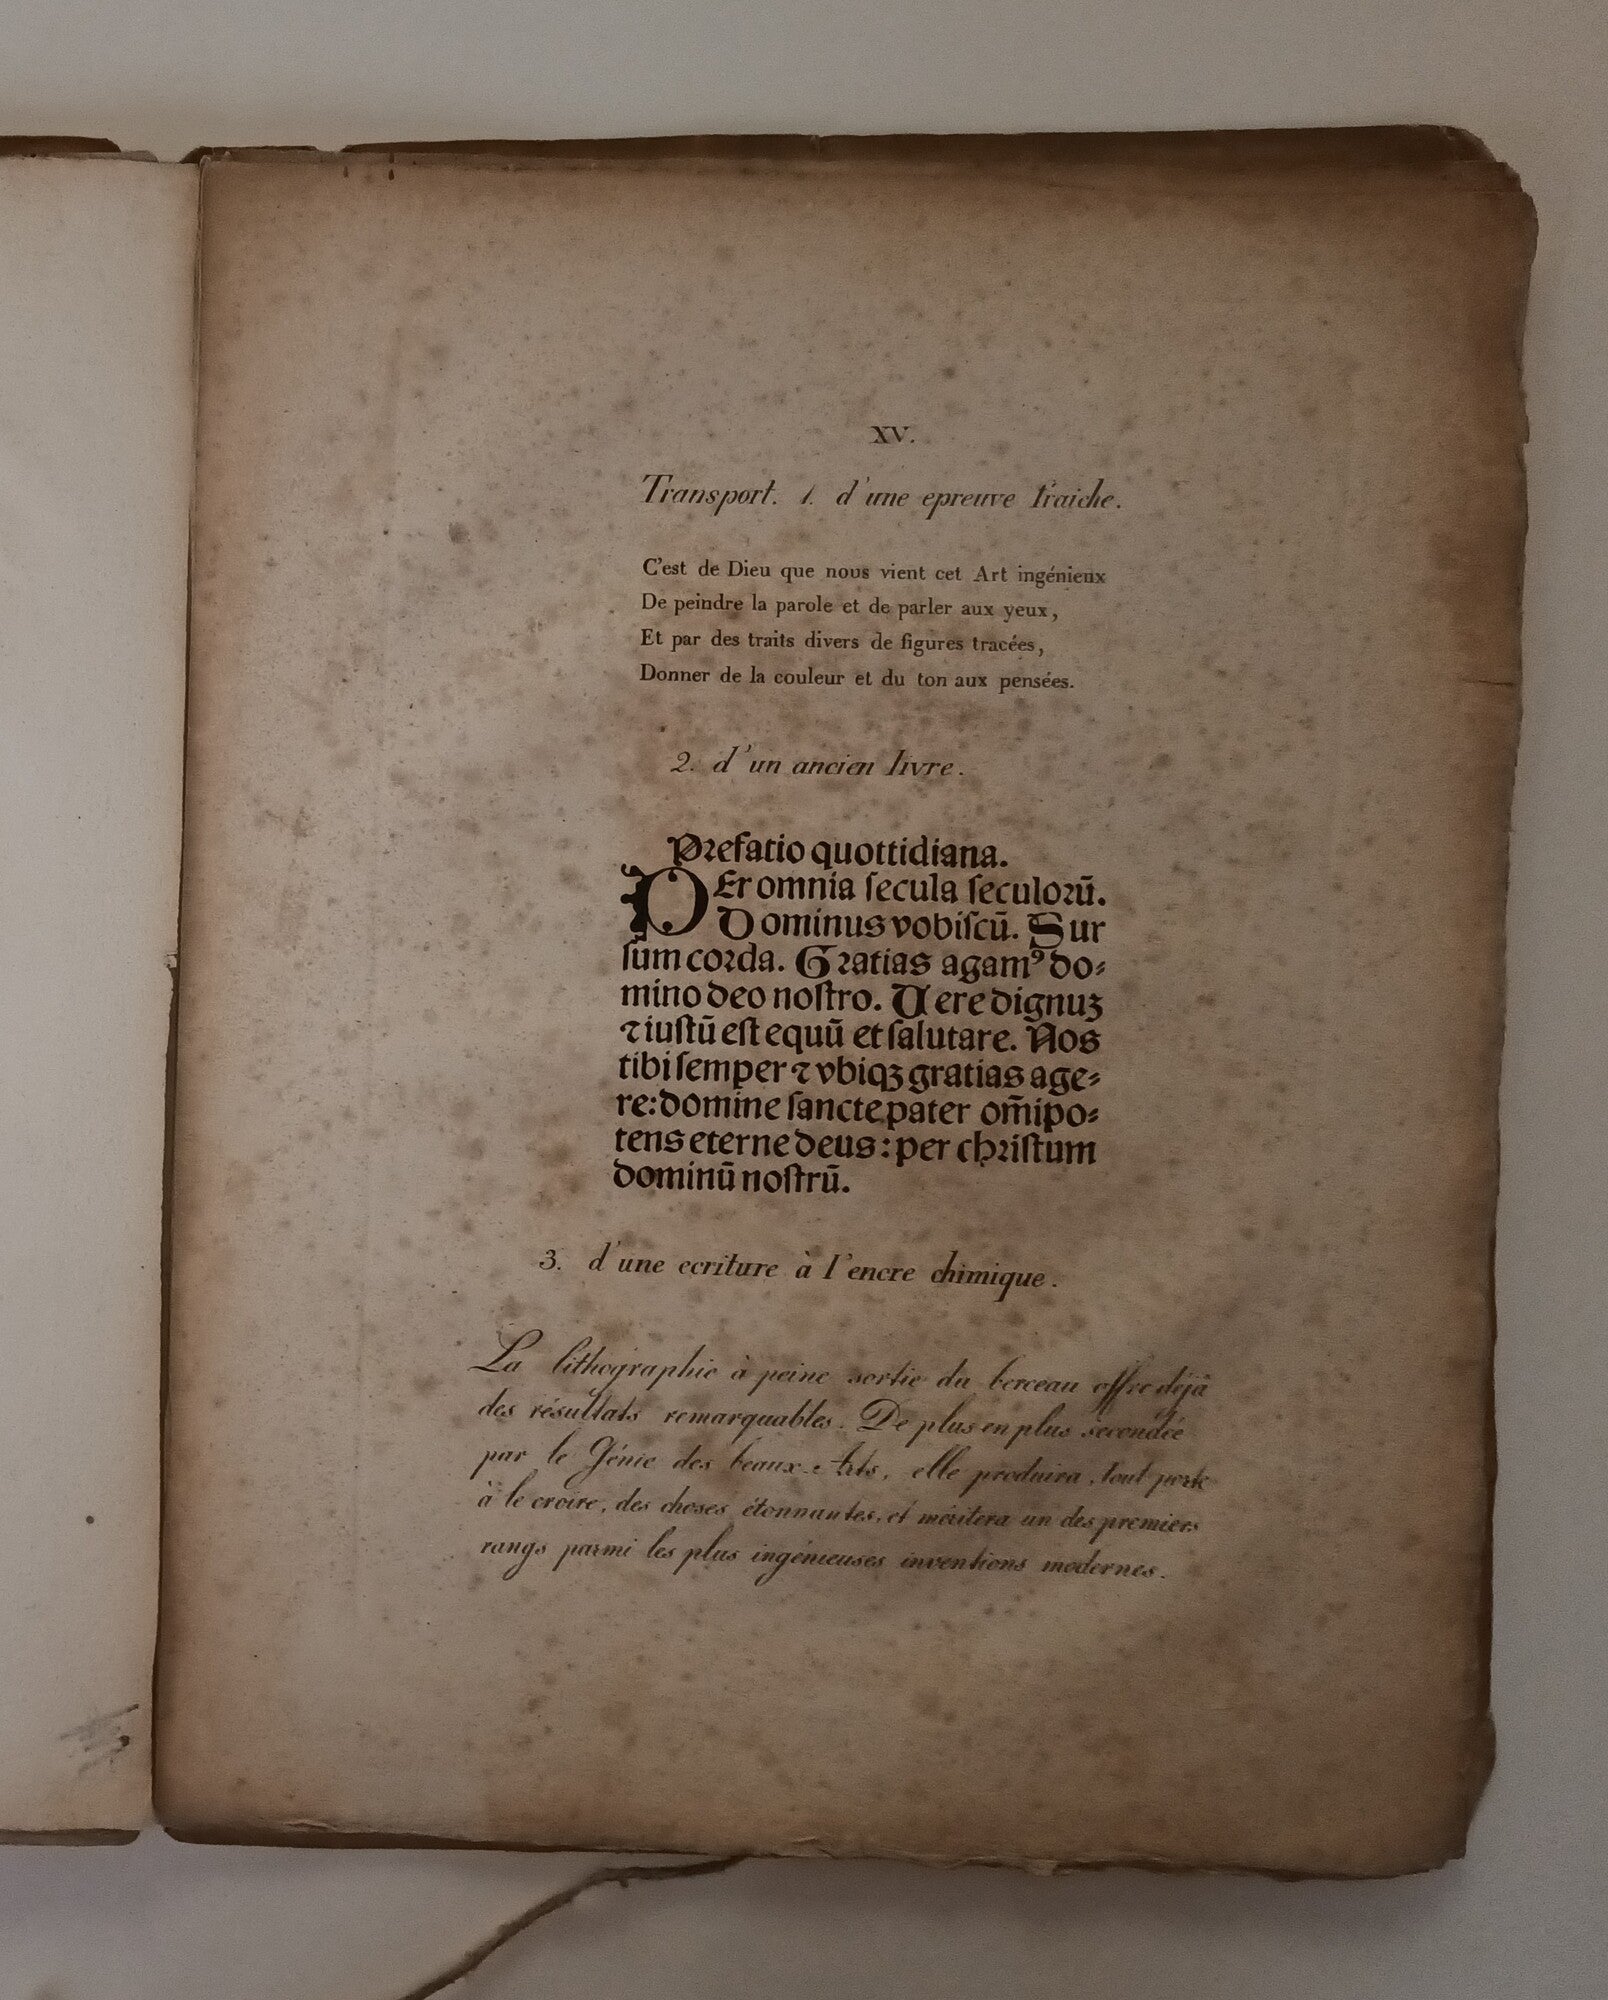 XV.
Transport. 1. d'une epreuve fraiche.
C'est de Dieu que nous vient cet Art ingénieux
De peindre la parole et de parler aux yeux,
Et par des traits divers de figures tracées,
Donner de la couleur et du ton aux pensées.
2. d'un ancien livre.
Prefatio quottidiana.
PEr omnia ſecula ſeculoꝛū.
Dominus vobiſcū. Sur
ſum coꝛda. Gꝛatias agamꝰ do⸗
mino deo noſtro. Uere dignuʒ
⁊ iuſtū eſt equū et ſalutare. Nos
tibi ſemper ⁊ vbiqʒ gratias age⸗
re: domine ſancte pater om̄ipo⸗
tens eterne deus: per chꝛiſtum
dominū noſtrū.
3. d'une ecriture à l'encre chimique.
La lithographie à peine sortie du berceau offre déjà
des résultats remarquables. De plus en plus secondée
par le Génie des beaux-Arts, elle produira, tout porte
à le croire, des choses étonnantes, et méritera un des premiers
rangs parmi les plus ingénieuses inventions modernes.